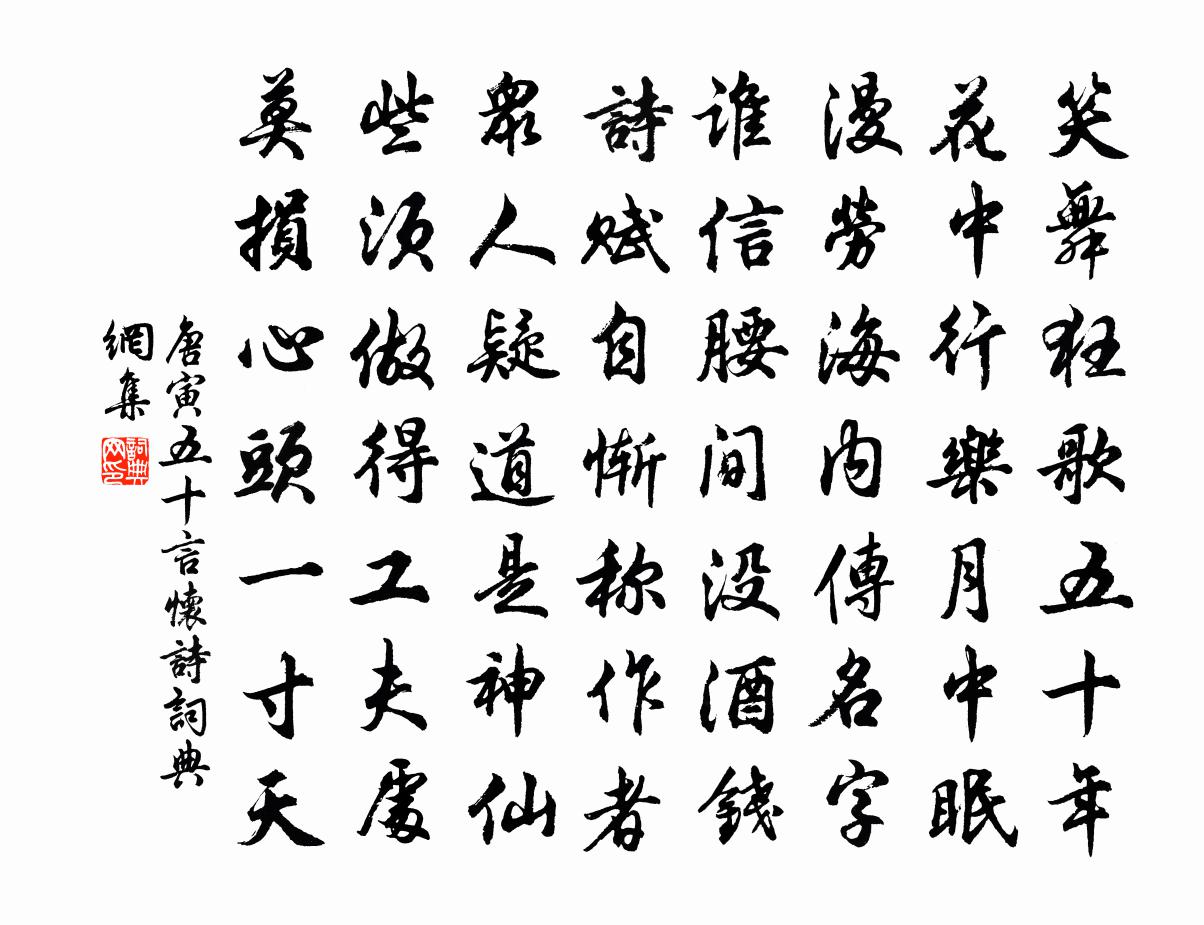 笑舞狂歌五十年
花中行樂月中眠
漫勞海内傳名字
谁信腰间没酒錢
詩赋自惭称作者
眾人疑道是神仙
些须做得工夫處
莫損心頭一寸天
唐寅五十言懷詩詞典
網集
詞典
网印